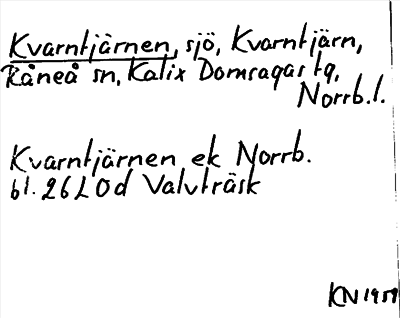 Kvarntjärnen, sjö, Kvarntjärn,
Råneå sn, Kalix Domsagas tg,
Norrb. l.
Kvarntjärnen ek Norrb.
bl. 26 L 0d Valvträsk
KN 1959